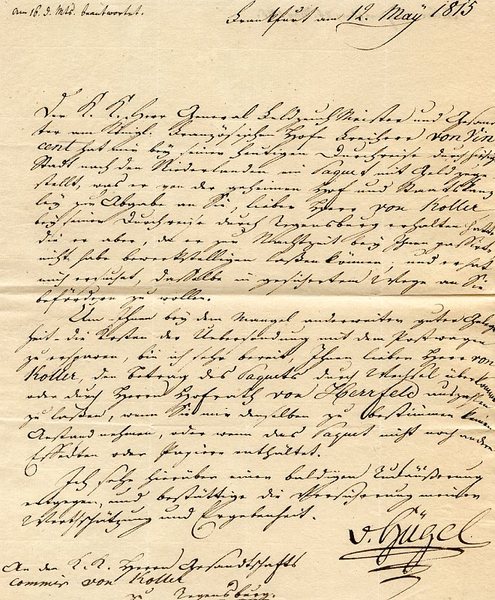 am 16. d. Mts. beantwortet.
Frankfurt am 12. May 1815
Der K. K. Herr General Feldzeugmeister und Gesand
ter am Königl. Französischen Hofe Freiherr von Vin
cent hat mir bey seiner heutigen Durchreise durch hiesige
Stadt nach den Niederlanden ein Paquet mit Geld zuge
stellt, was er von der geheimen Hof und Staats Kanz
ley zu Abgabe an Sie, lieber Herr von Koller
bey seiner Durchreise durch Regensburg erhalten hatte
die er aber, da er zu Nachtzeit bey Ihnen passirte
nicht habe bewerkstelligen lassen können und er hat
mich ersucht, dasselbe in gesichertem Wege an Sie
befördern zu wollen.
Um Ihnen bey dem Mangel anderweiter guter Gelegen
heit die Kosten der Uebersendung mit dem Postwagen
zu ersparen, bin ich sehr bereit, Ihnen lieber Herr von
Koller, den Betrag des Paquets durch Wechsel
oder durch Herrn Hofrath von Herrfeld auszahlen
zu lassen, wenn Sie mir denselben zu bestimmen keinen
Anstand nehmen, oder wenn das Paquet nicht noch andere
Effecten oder Papiere enthaltet.
Ich sehe hierüber einer baldigen Rückäußerung
entgegen, und bestättige die Versicherung meiner
Werthschätzung und Ergebenheit.
v. Hügel
An den K. K. Herrn Gesandtschafts
commis von Koller
zu Regensburg.